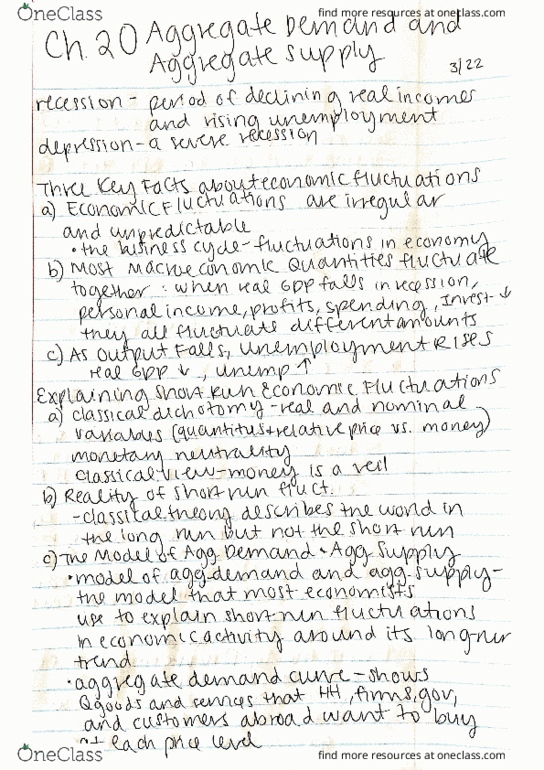 OneClass
find more resources at oneclass.com
Ch. 20 Aggregate Demand and
Aggregate supply
3/22
recession - period of declining real incomes
and rising unemployment
depression - a severe recession
Three Key Facts about economic fluctuations
a) Economic Fluctuations are irregular
and unpredictable
• the business cycle - fluctuations in economy
b) Most Macroeconomic Quantities fluctuate
together : when real GDP falls in recession,
personal income, profits, spending, Invest- ↓
they all fluctuate different amounts
c) As Output Falls, Unemployment Rises
real GDP ↓ , unemp ↑
Explaining Short Run Economic Fluctuations
a) classical dichotomy - real and nominal
variables (quantitus + relative price vs. money)
monetary neutrality
classical view - money is a veil
b) Reality of short run fluct.
- classical theory describes the world in
the long run but not the short run
c) The Model of Agg. Demand + Agg Supply
• model of agg. demand and agg. supply -
the model that most economists
use to explain short-run fluctuations
in economic activity around its long-run
trend
• aggregate demand curve - shows
Q goods and services that HH, firms, gov,
and customers abroad want to buy
at each price level
OneClass
find more resources at oneclass.com